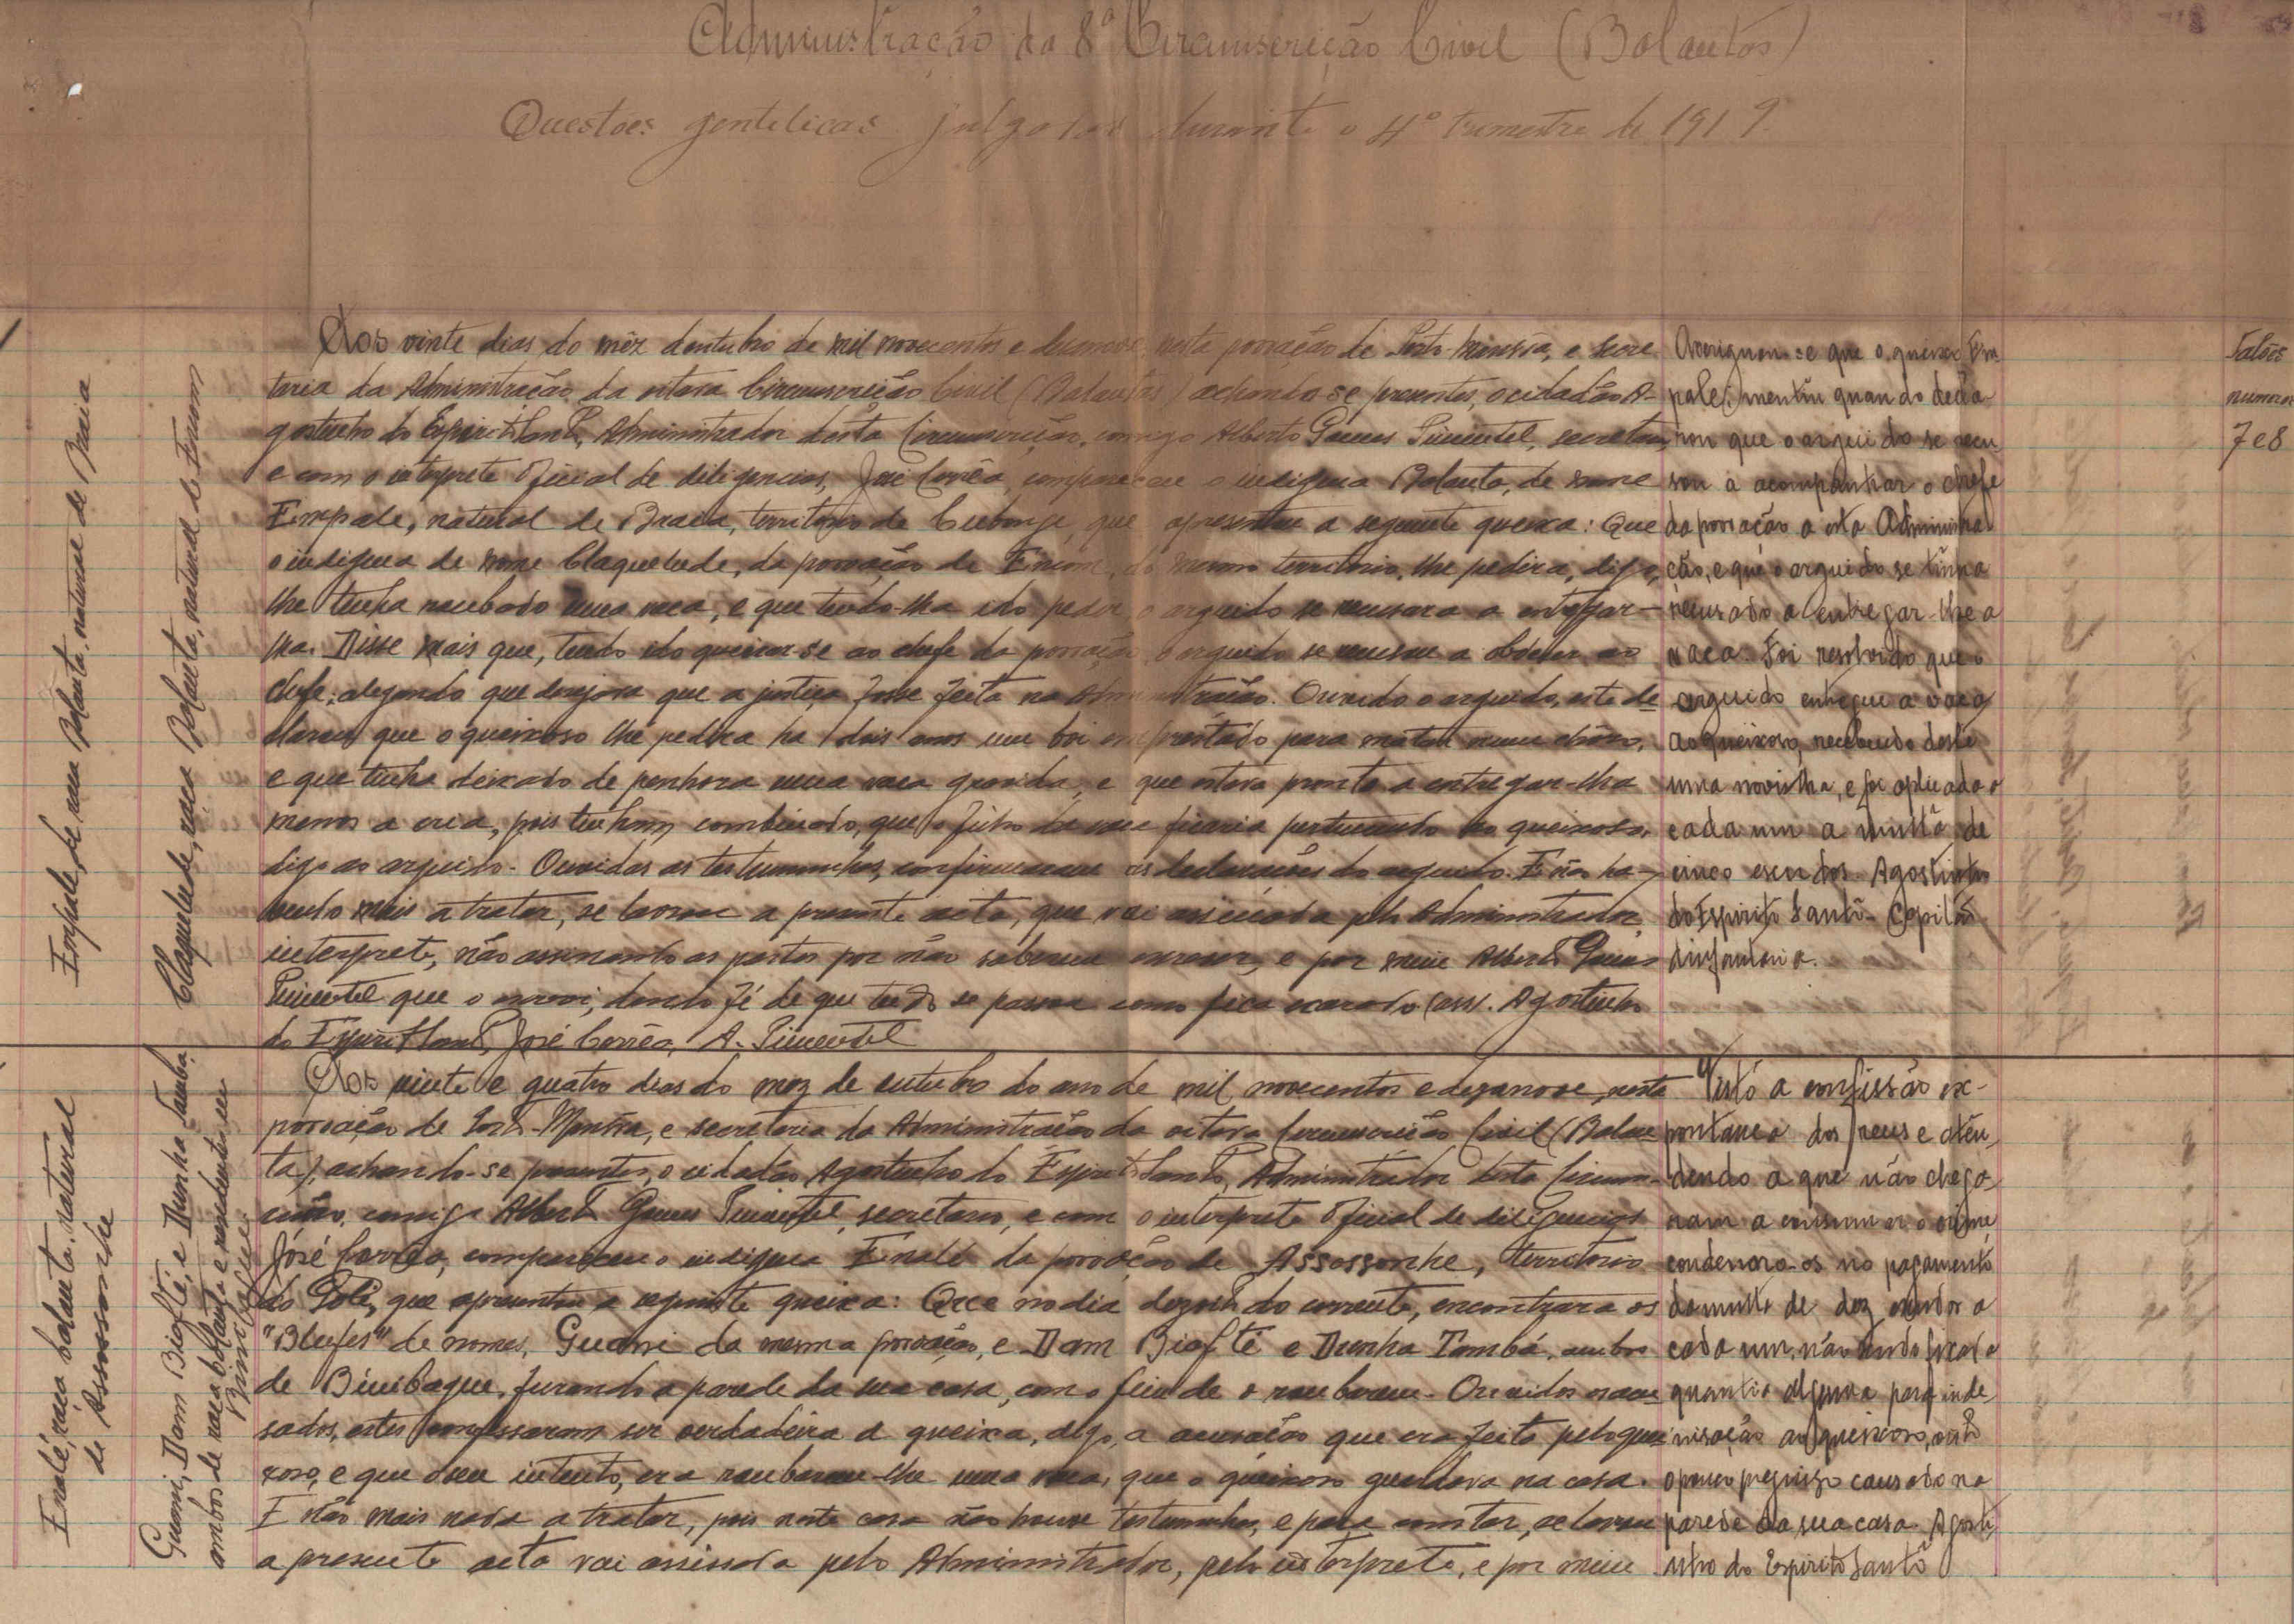 Administração da 8ª Circunscrição Civil (Balantas)
Questões gentilicas julgadas durante o 4º trimestre de 1919.
1
Empale, de raça Balanta, natural de Braia
Claquetude, raça Balanta, natural de Encom
Aos vinte dias do mêz doutubro de mil novecentos e dezanove, nesta povoação de Porto-Mansôa, e secre
taria da Administração da oitava Circunscrição Civil (Balantas) achando-se presentes, o cidadão A-
gostinho do Espirito Santo, Administrador desta Circunscrição, comigo Alberto Gomes Pimentel, secretario,
e com o interprete oficial de diligencias, José Corrêa, compareceu o indigena Balanta, de nome
Empale, natural de Braia, territorio de Cubonge, que apresentou a seguinte queixa: Que
o indigena de nome Claquetude, da povoação de Encom, do mesmo territorio, lhe pedira, digo,
lhe tinha roubado uma vaca, e que tendo-lha ido pedir o arguido se recusara a entregar-
lha. Disse mais que, tendo ido queixar-se ao chefe da povoação, o arguido se recusou a obedecer ao
chefe, alegando que desejava que a justiça fosse feita na Administração. Ouvido o arguido, este de
clarou que o queixoso lhe pedira ha dois anos um boi emprestado para matar num chôro,
e que tinha deixado de penhora uma vaca gravida, e que estava pronto a entregar-lha
menos a cria, pois tinham combinado, que o filho da vaca ficaria pertencendo ao queixoso,
digo ao arguido. Ouvidas as testemunhas, confirmaram as declarações do arguido. E não ha-
vendo mais a tratar, se lavrou a presente acta, que vai assinada pelo Administrador,
interprete, não assinando as partes por não saberem escrever, e por mim Alberto Gomes
Pimentel que o escrevi, dando fé de que tudo se passou como fica exarado. (ass). Agostinho
do Espirito Santo, José Corrêa, A. Pimentel
Averiguou-se que o queixoso Em-
pale, mentiu quando decla-
rou que o arguido se recu-
sou a acompanhar o chefe
da povoação a esta Administra
ção, e que o arguido se tinha
recusado a entregar-lhe a
vaca. Foi resolvido que o
arguido entregue a vaca
ao queixoso, recebendo deste
uma novilha, e foi aplicada a
cada um a multa de
cinco escudos. Agostinho
do Espirito Santo - Capitão
dinfantaria.
Talões
numeros
7 e 8
Enalé, raça balanta, natural
de Assossonhe
Guami, Dam Biofté, e Dunha Tamba,
ambos de raça balanta e residentes em
Binibaque
Aos vinte e quatro dias do mez de outubro do ano de mil novecentos e dezanove, nesta
povoação de Porto-Mansôa, e secretaria da Administração da oitava Circunscrição Civil (Balan
ta), achando-se presentes, o cidadão Agostinho do Espirito Santo, Administrador desta Circuns-
crição, comigo Alberto Gomes Pimentel, secretario, e com o interprete oficial de diligencias
José Corrêa, compareceu o indigena Enalé da povoação de Assossonhe, territorio
do Polé, que apresentou a seguinte queixa: Que no dia dezoito do corrente, encontrara os
"Blufes" de nomes, Guami da mesma povoação, e Dam Biofté e Dunha Tambá, ambos
de Binibaque, furando a parede da sua casa, com o fim de o roubarem. Ouvidos os acu-
sados, estes confessaram ser verdadeira a queixa, digo, a acusação que era feita pelo quei
xoso, e que o seu intento, era roubarem-lhe uma vaca, que o queixoso guardava na casa.
E não mais nada a tratar, pois neste caso não houve testemunhas, e para constar, se lavrou
a presente acta vai assinada pelo Administrador, pelo interprete, e por mim
Visto a confissão ex-
pontanea dos reus e aten-
dendo a que não chega-
ram a consumar o crime,
condenara-os no pagamento
da multa de dez escudos a
cada um, não sendo fixada
quantia alguma para inde-
nisação ao queixoso, visto
o pouco prejuizo causado na
parede da sua casa. Agosti-
nho do Espirito Santo